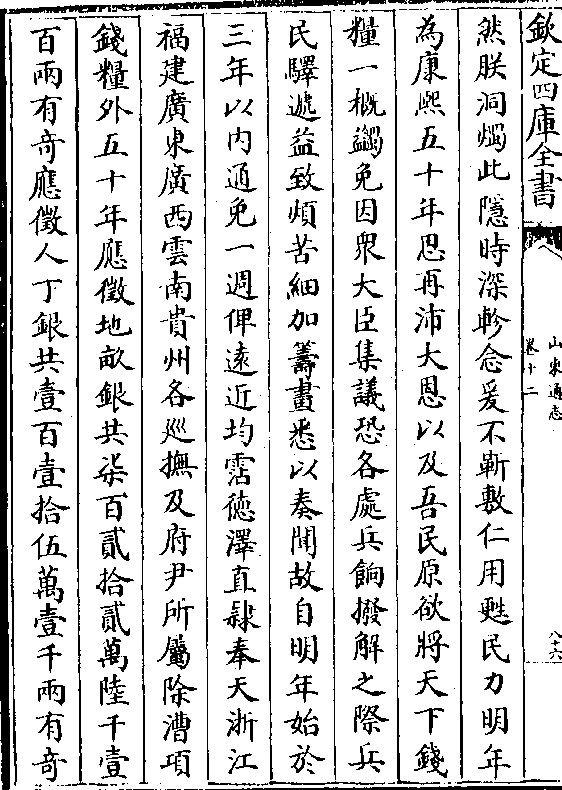 欽定四庫全書
山東通志
卷十二
八十六
然朕洞燭此隱時深軫念爰不靳敷仁用甦民力明年
為康熙五十年思再沛大恩以及吾民原欲將天下錢
糧一概蠲免因衆大臣集議恐各處兵餉撥解之際兵
民驛遞益致煩苦細加籌畫悉以奏聞故自明年始於
三年以內通免一週俾遠近均霑德澤直隸奉天浙江
福建廣東廣西雲南貴州各巡撫及府尹所屬除漕項
錢糧外五十年應徵地畝銀共柒百貳拾貳萬陸千壹
百兩有奇應徵人丁銀共壹百壹拾伍萬壹千兩有奇